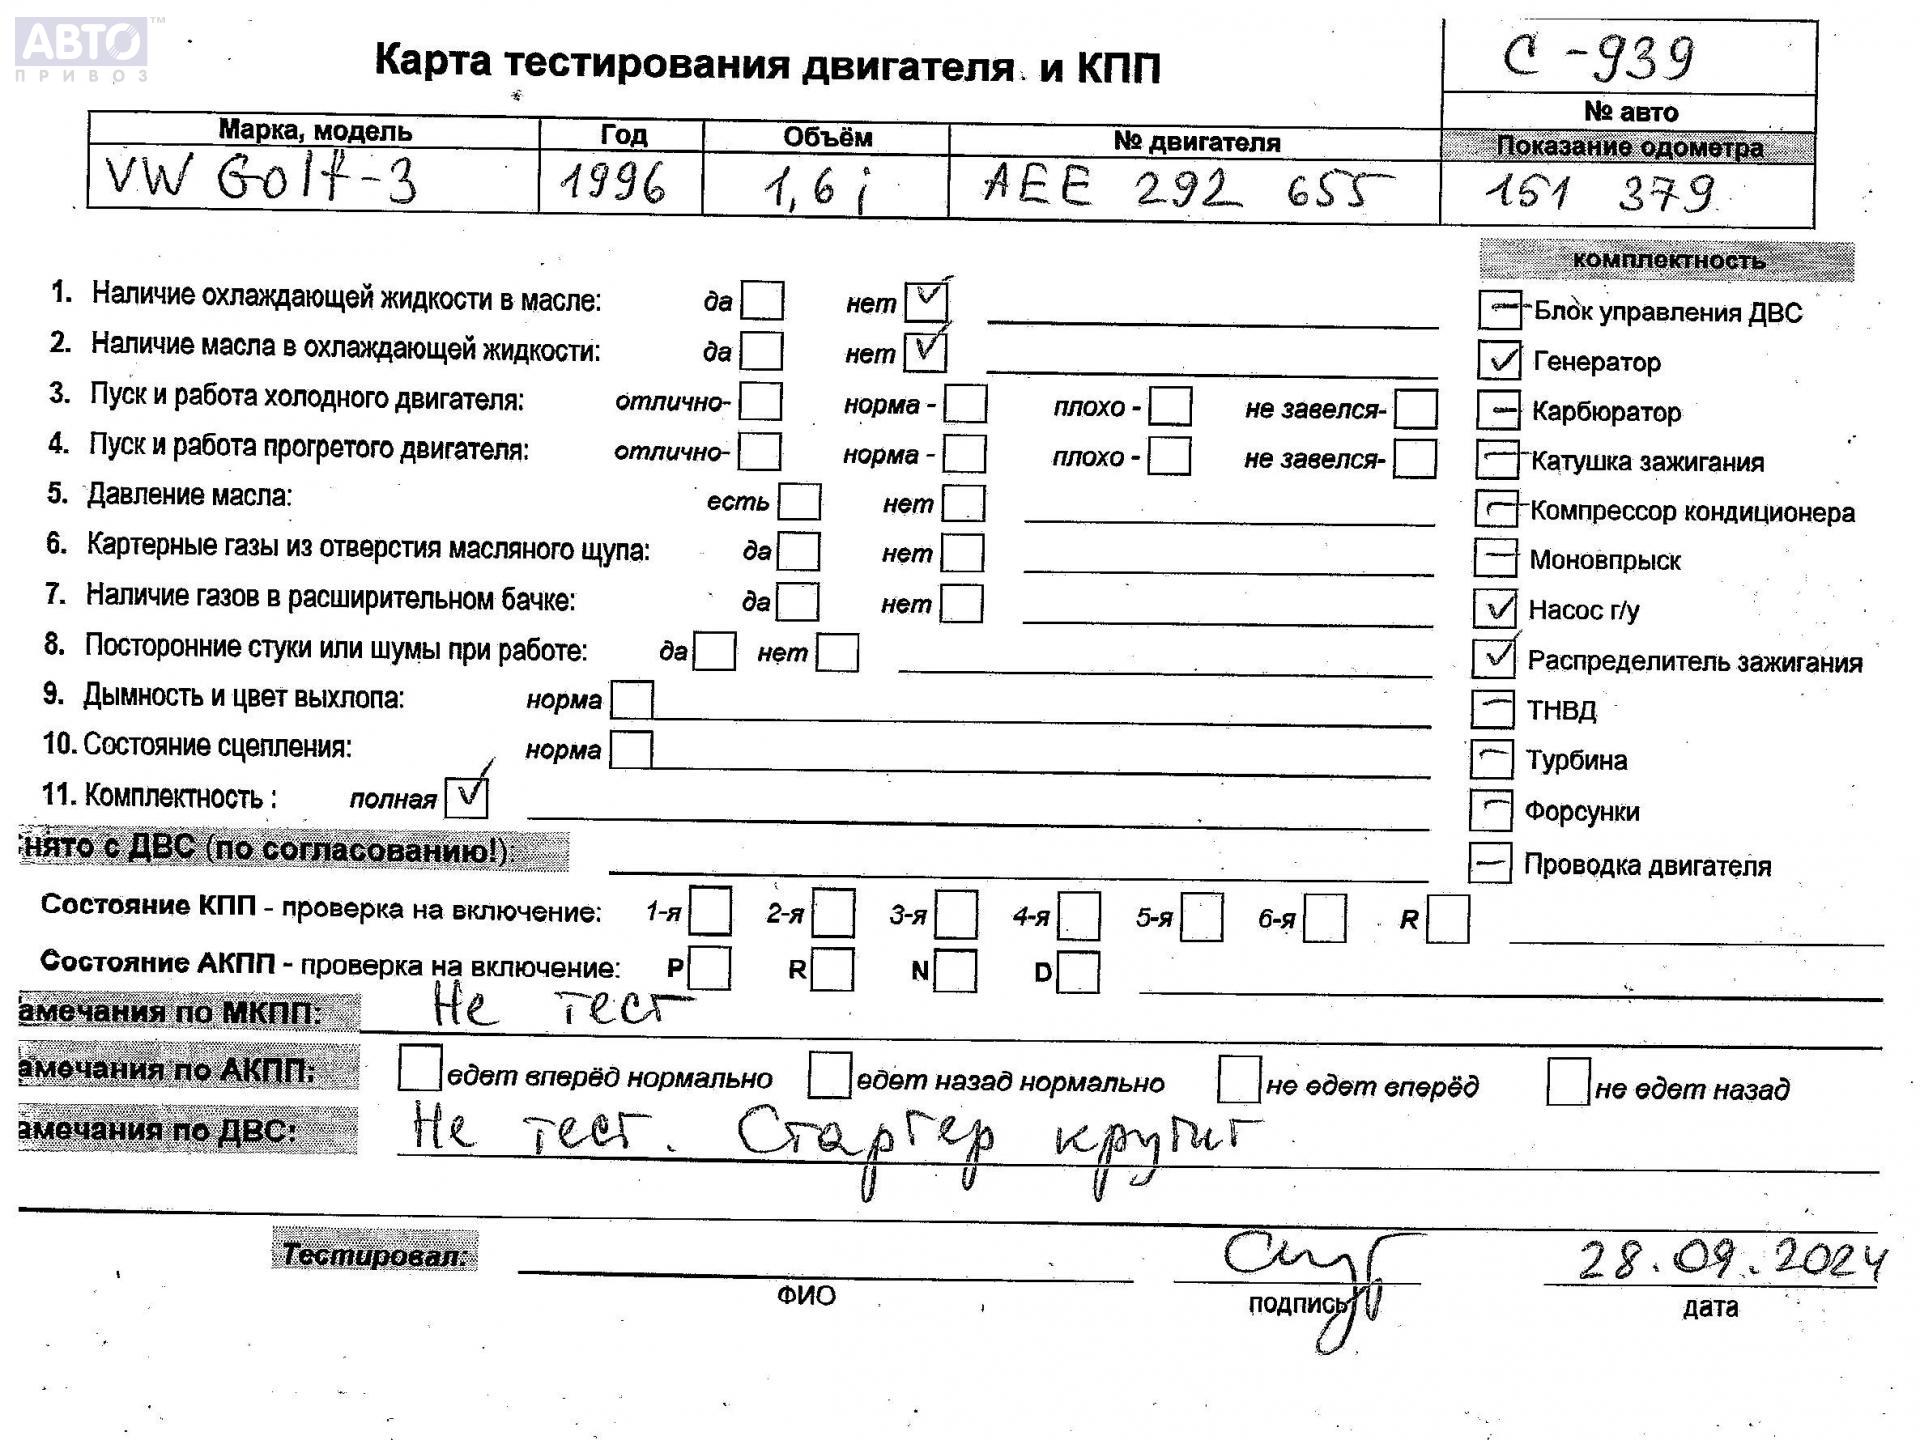 АВТО™
ПРИВОЗ
Карта тестирования двигателя и КПП
С-939
№ авто
Марка, модель Год Объём № двигателя Показание одометра
VW Golf-3 1996 1,6 i AEE 292 655 151 379
комплектность
1. Наличие охлаждающей жидкости в масле: да нет ✓
2. Наличие масла в охлаждающей жидкости: да нет ✓
3. Пуск и работа холодного двигателя: отлично- норма - плохо - не завелся-
4. Пуск и работа прогретого двигателя: отлично- норма - плохо - не завелся-
5. Давление масла: есть нет
6. Картерные газы из отверстия масляного щупа: да нет
7. Наличие газов в расширительном бачке: да нет
8. Посторонние стуки или шумы при работе: да нет
9. Дымность и цвет выхлопа: норма
10. Состояние сцепления: норма
11. Комплектность : полная ✓
– Блок управления ДВС
✓ Генератор
– Карбюратор
– Катушка зажигания
– Компрессор кондиционера
– Моновпрыск
✓ Насос г/у
✓ Распределитель зажигания
– ТНВД
– Турбина
– Форсунки
– Проводка двигателя
нято с ДВС (по согласованию!):
Состояние КПП - проверка на включение: 1-я 2-я 3-я 4-я 5-я 6-я R
Состояние АКПП - проверка на включение: P R N D
амечания по МКПП: Не тест
амечания по АКПП: едет вперёд нормально едет назад нормально не едет вперёд не едет назад
амечания по ДВС: Не тест. Стартер крутит
Тестировал: 28.09.2024
ФИО подпись дата